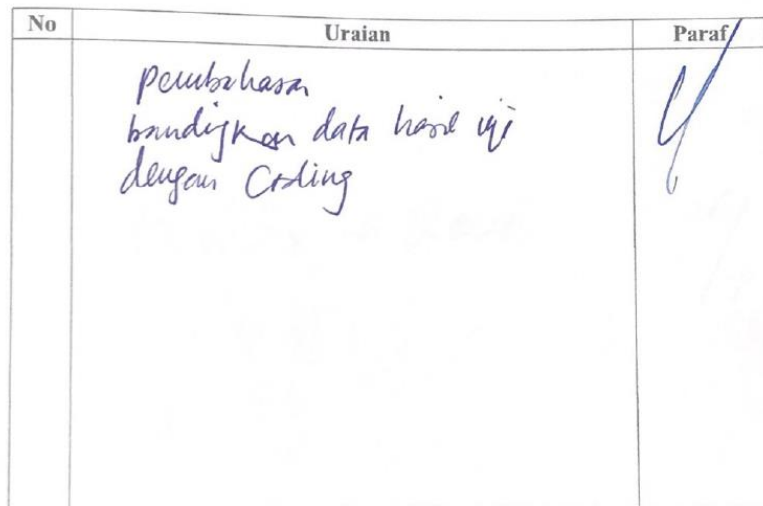 No Uraian Paraf
Pembahasan
bandingkan data hasil uji
dengan Coding